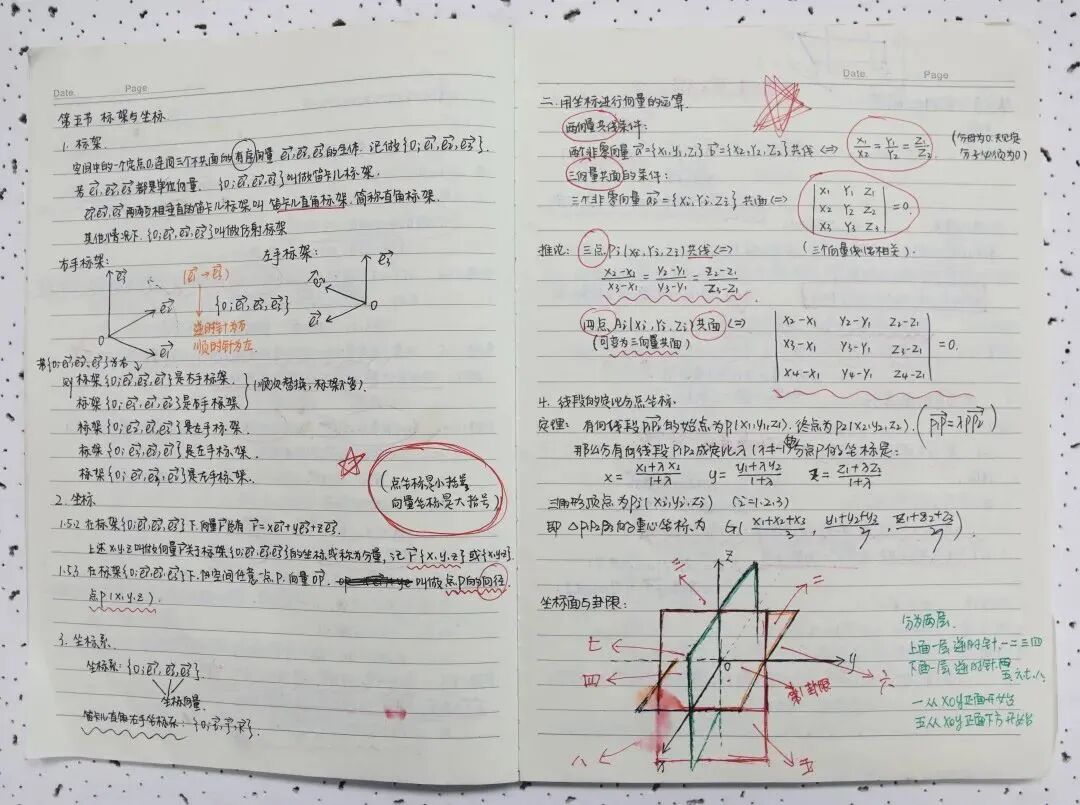 Date Page
第五节 标架与坐标.
1. 标架
空间中的一个定点O,连同三个不共面的有序向量 e₁,e₂,e₃的全体. 记做{O;e₁,e₂,e₃}.
若e₁,e₂,e₃都是单位向量. {O;e₁,e₂,e₃}叫做笛卡儿标架.
e₁,e₂,e₃两两相垂直的笛卡儿标架叫笛卡儿直角标架. 简称直角标架.
其他情况下.{O;e₁,e₂,e₃}叫做仿射标架
右手标架: 左手标架:
e₃ (e₁→e₃) e₃
e₂ {O;e₁,e₂,e₃} e₂
逆时针为右 O
顺时针为左. e₁
O e₁
若{O;e₁,e₂,e₃}为右
则 标架{O;e₂,e₃,e₁}是右手标架. (顺次替换,标架不变).
标架{O;e₃,e₁,e₂}是右手标架
标架{O;e₂,e₁,e₃}是左手标架.
标架{O;e₃,e₂,e₁}是左手标架.
标架{O;e₁,e₃,e₂}是左手标架.
(点坐标是小括号,
向量坐标是大括号)
2. 坐标
1.5.2 在标架{O;e₁,e₂,e₃}下,向量r总有 r=xe₁+ye₂+ze₃.
上述x.y.z叫做向量r关于标架{O;e₁,e₂,e₃}的坐标或称为分量,记r{x,y,z}或{x,y,z}.
1.5.3 在标架{O;e₁,e₂,e₃}下,空间任意一点P,向量OP. 叫做点P的向径
点P(x,y,z).
3. 坐标系
坐标系:{O;e₁,e₂,e₃}
坐标向量
笛卡儿直角右手坐标系:{O;i,j,k}.
Date Page
二. 用坐标进行向量的运算.
两向量共线条件:
两个非零向量 a={x₁,y₁,z₁} b={x₂,y₂,z₂}共线 <=> x₁/x₂ = y₁/y₂ = z₁/z₂ (分母为0.未规定 分子必须为0)
三向量共面的条件:
三个非零向量 aᵢ={xᵢ,yᵢ,zᵢ}共面<=> | x₁ y₁ z₁ |
| x₂ y₂ z₂ | =0.
| x₃ y₃ z₃ |
推论: 三点Pᵢ(xᵢ,yᵢ,zᵢ)共线<=> (三个向量线性相关).
x₂-x₁/x₃-x₁ = y₂-y₁/y₃-y₁ = z₂-z₁/z₃-z₁
四点Aᵢ(xᵢ,yᵢ,zᵢ)共面<=> | x₂-x₁ y₂-y₁ z₂-z₁ |
(可变为三向量共面) | x₃-x₁ y₃-y₁ z₃-z₁ | =0.
| x₄-x₁ y₄-y₁ z₄-z₁ |
4. 线段的定比分点坐标.
定理: 有向线段P₁P₂的始点为P₁(x₁,y₁,z₁). 终点为P₂(x₂,y₂,z₂). (P₁P=λPP₂)
那么分有向线段P₁P₂成定比λ(λ≠-1)的分点P的坐标是:
x= x₁+λx₂/1+λ y= y₁+λy₂/1+λ z= z₁+λz₂/1+λ
三角形顶点为Pᵢ(xᵢ,yᵢ,zᵢ) (i=1.2.3)
即△P₁P₂P₃的重心坐标为 G(x₁+x₂+x₃/3, y₁+y₂+y₃/3, z₁+z₂+z₃/3).
坐标面与卦限:
z
三 二
七
四
O y
第一卦限 六
八 x 五
分为两层.
上面一层逆时针.一二三四
下面一层逆时针.
五六七八
一从xoy正面开始
五从xoy正面下方开始